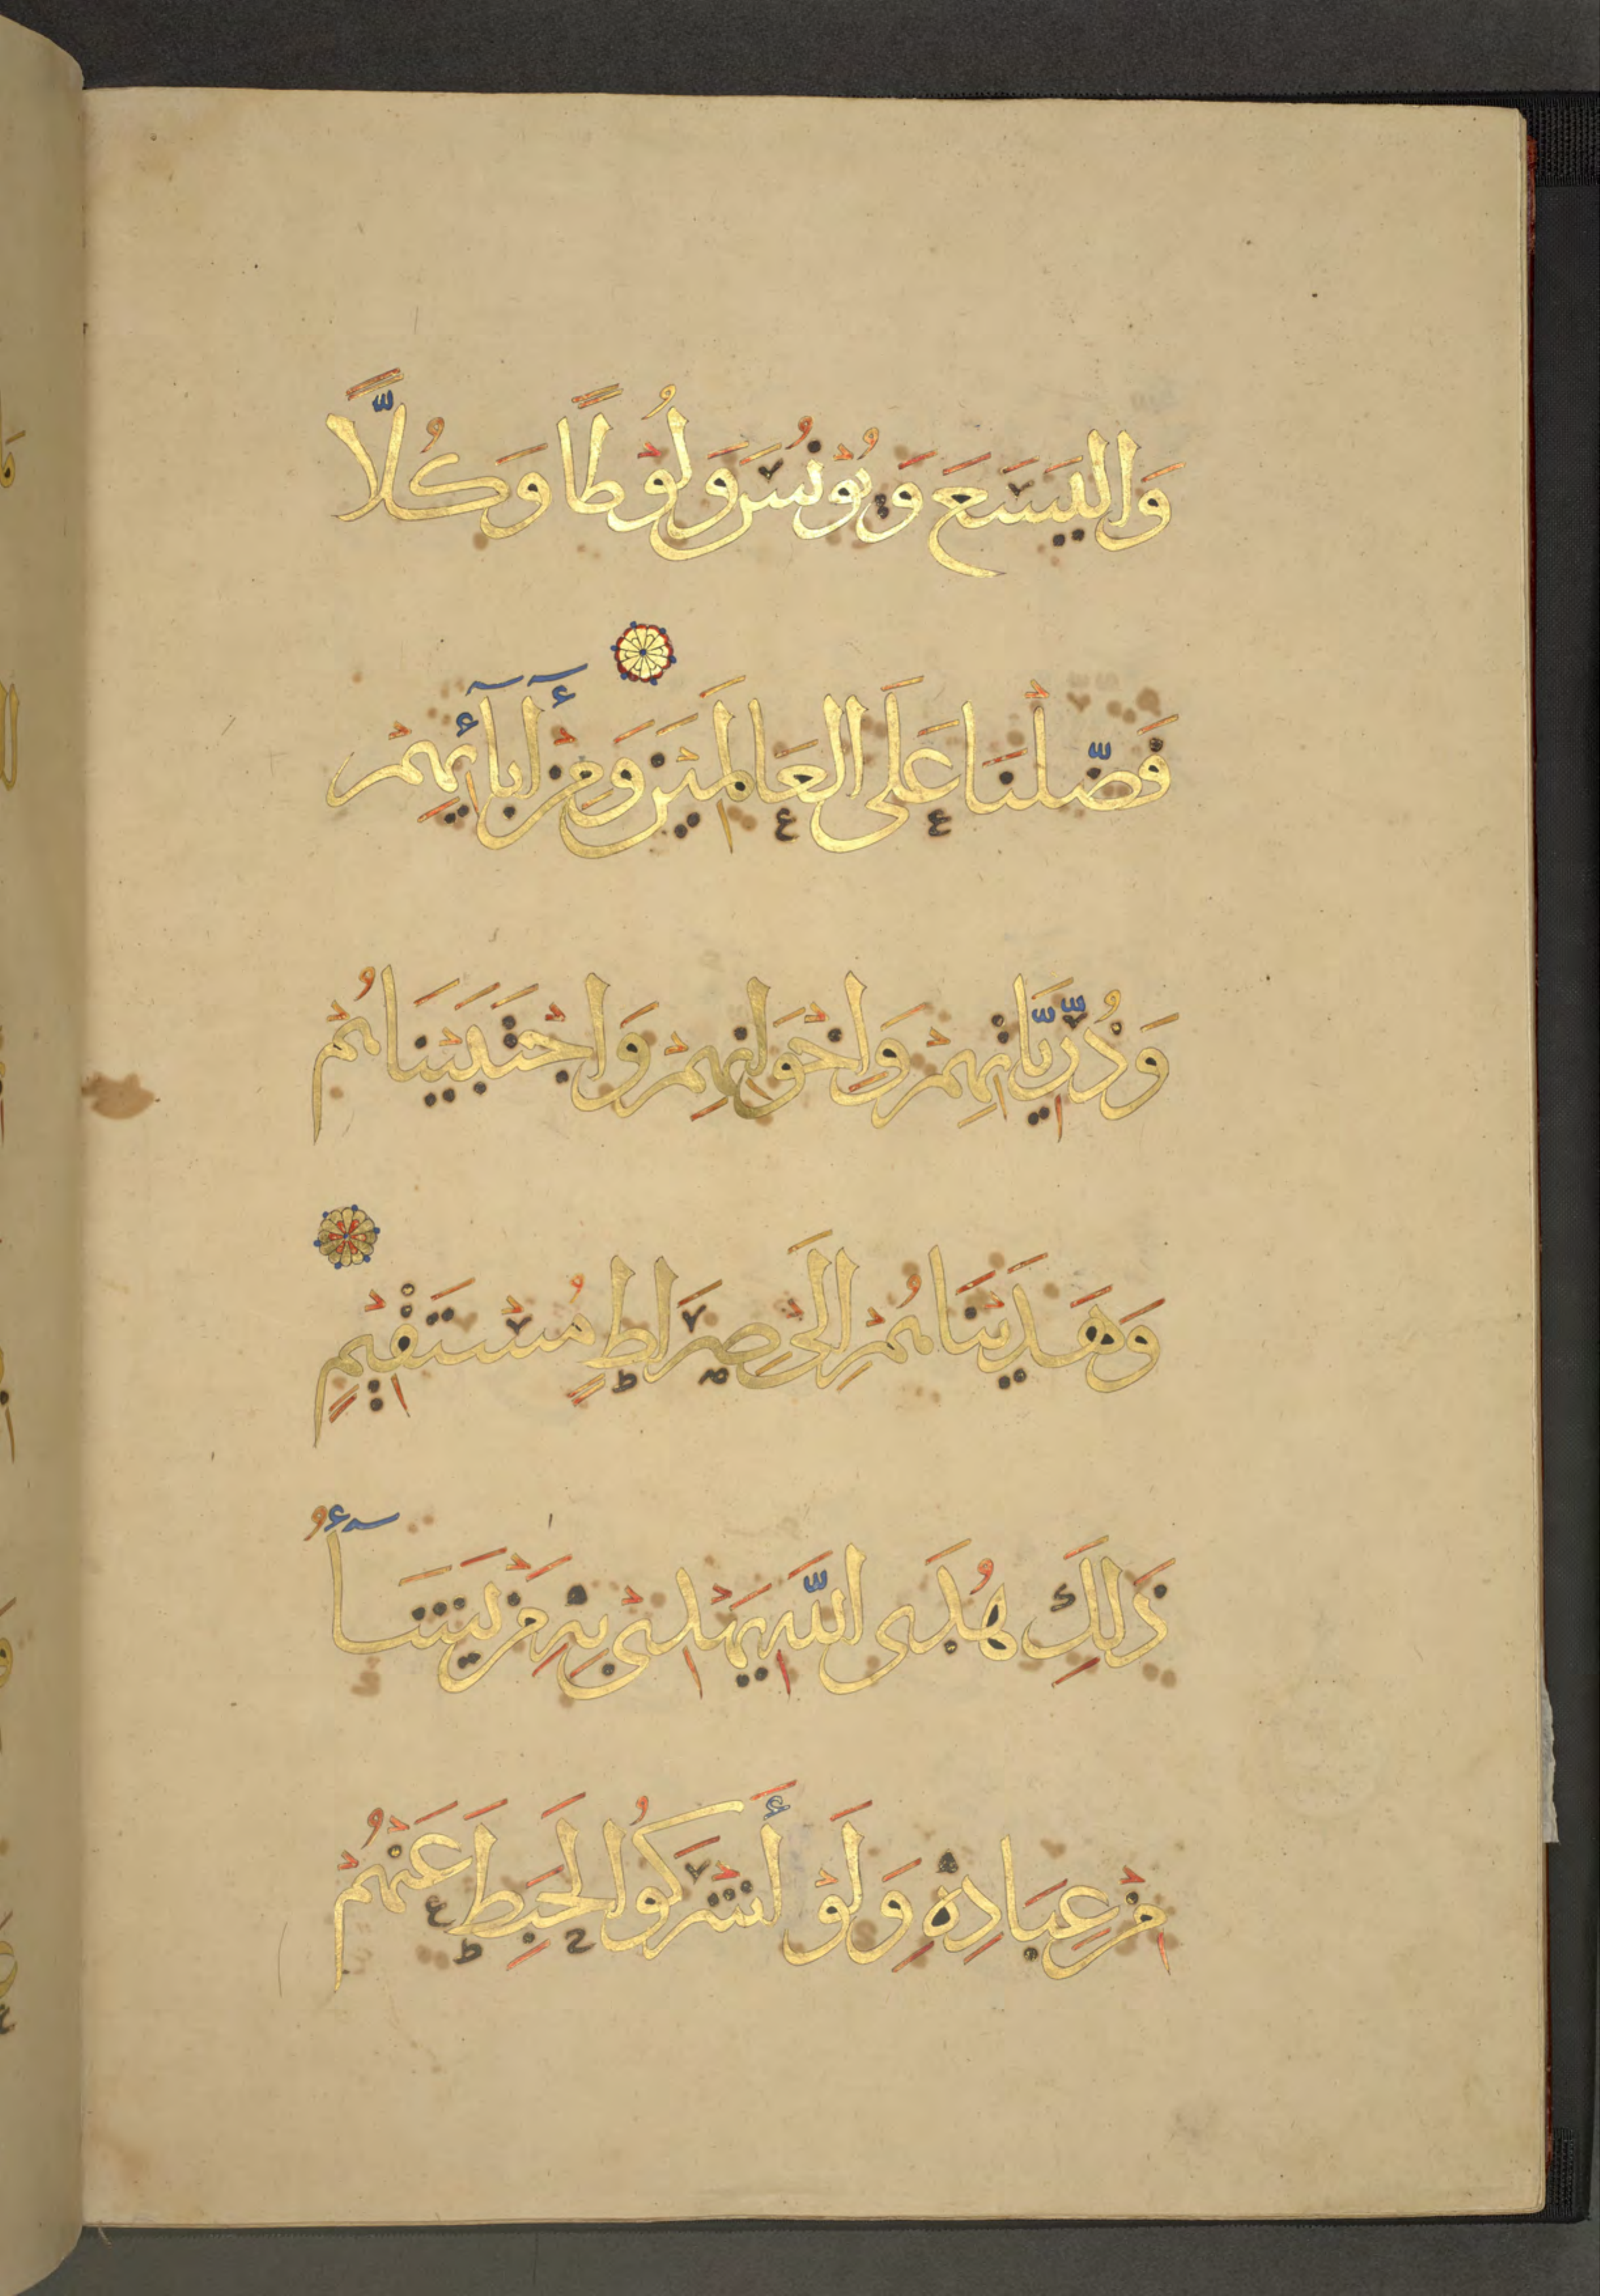 وَاليَسَعَ وَيُوْنُسَ وَلُوْطًا وَكُلًّا
فَضَّلْنَا عَلَى العَالَمِيْنَ وَمِنْ أٓبَآئِهِمْ
وَذُرِّيَّاتِهِمْ وَاِخْوَانِهِمْ وَاجْتَبَيْنَاهُمْ
وَهَدَيْنَاهُمْ اِلَى صِرَاطٍ مُسْتَقِيْمٍ
ذَلِكَ هُدَى اللَّهِ يَهْدِيْ بِهِ مَنْ يَشَآءُ
مِنْ عِبَادِهِ وَلَوْ أَشْرَكُوا لَحَبِطَ عَنْهُمْ